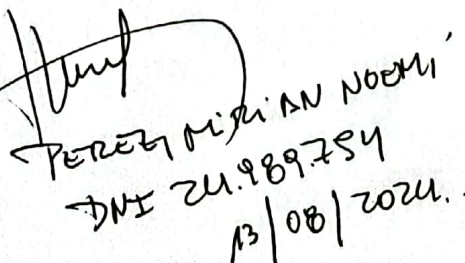 PEREZ, MIRIAN NOEMÍ
DNI 24.989.754
13/08/2024.